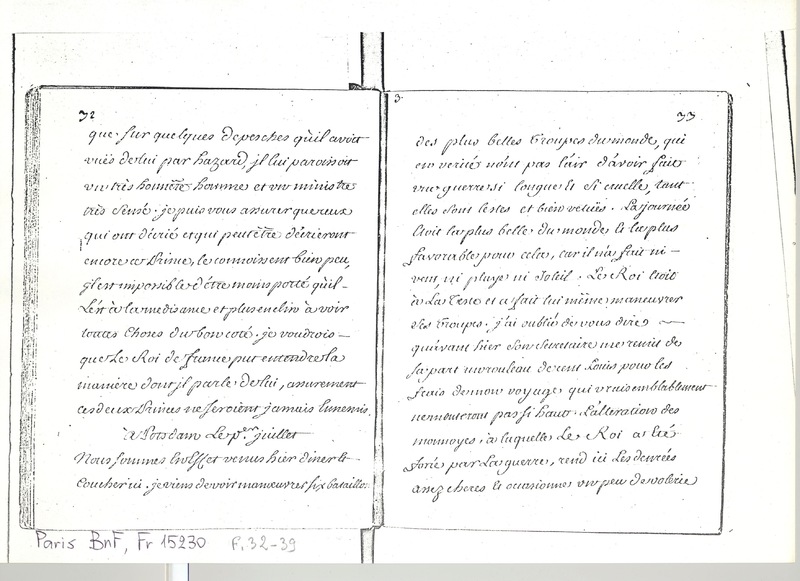 32
que sur quelques depesches qu'il avoit
vuës de lui par hazard, jl lui paroissoit
un très honnête homme et un ministre
très sensé. je puis vous assurer que ceux
qui ont décrié et qui peutêtre décrieront
encore ce Prince, le connoissent bien peu,
jl est impossible d'être moins porté qu'il
L'est à la medisance et plus enclin à voir
toutes choses du bon coté. je voudrois
que Le Roi de france put entendre la
manière dont jl parle de lui, assurement
ces deux Princes ne seroient jamais Ennemis.
à Potsdam Le p.er juillet
Nous sommes et venus hier diner et
Coucher ici. je viens de voir manœuvrer six bataillons
3.
33
des plus belles Troupes du monde, qui
en verité n'ont pas l'air d'avoir fait
une guerre si longue et si cruelle, tant
elles sont lestes et bien vetües. La journée
Etoit la plus belle du monde et la plus
favorable pour cela, car il n'a fait ni
vent, ni pluye ni Soleil. Le Roi Etoit
à La Teste et a fait lui même manœuvrer
Ses Troupes. j'ai oublié de vous dire
qu'avant hier Son Secretaire me remit de
Sa part un rouleau de cent Louis pour les
frais de mon voyage, qui vraisemblablement
ne monteront pas si haut. L'alteration des
monnoyes, à laquelle Le Roi a Eté
forcé par La guerre, rend ici Les denrées
assez cheres et occasionne un peu de volerie
Paris BnF, Fr 15230 F. 32-39